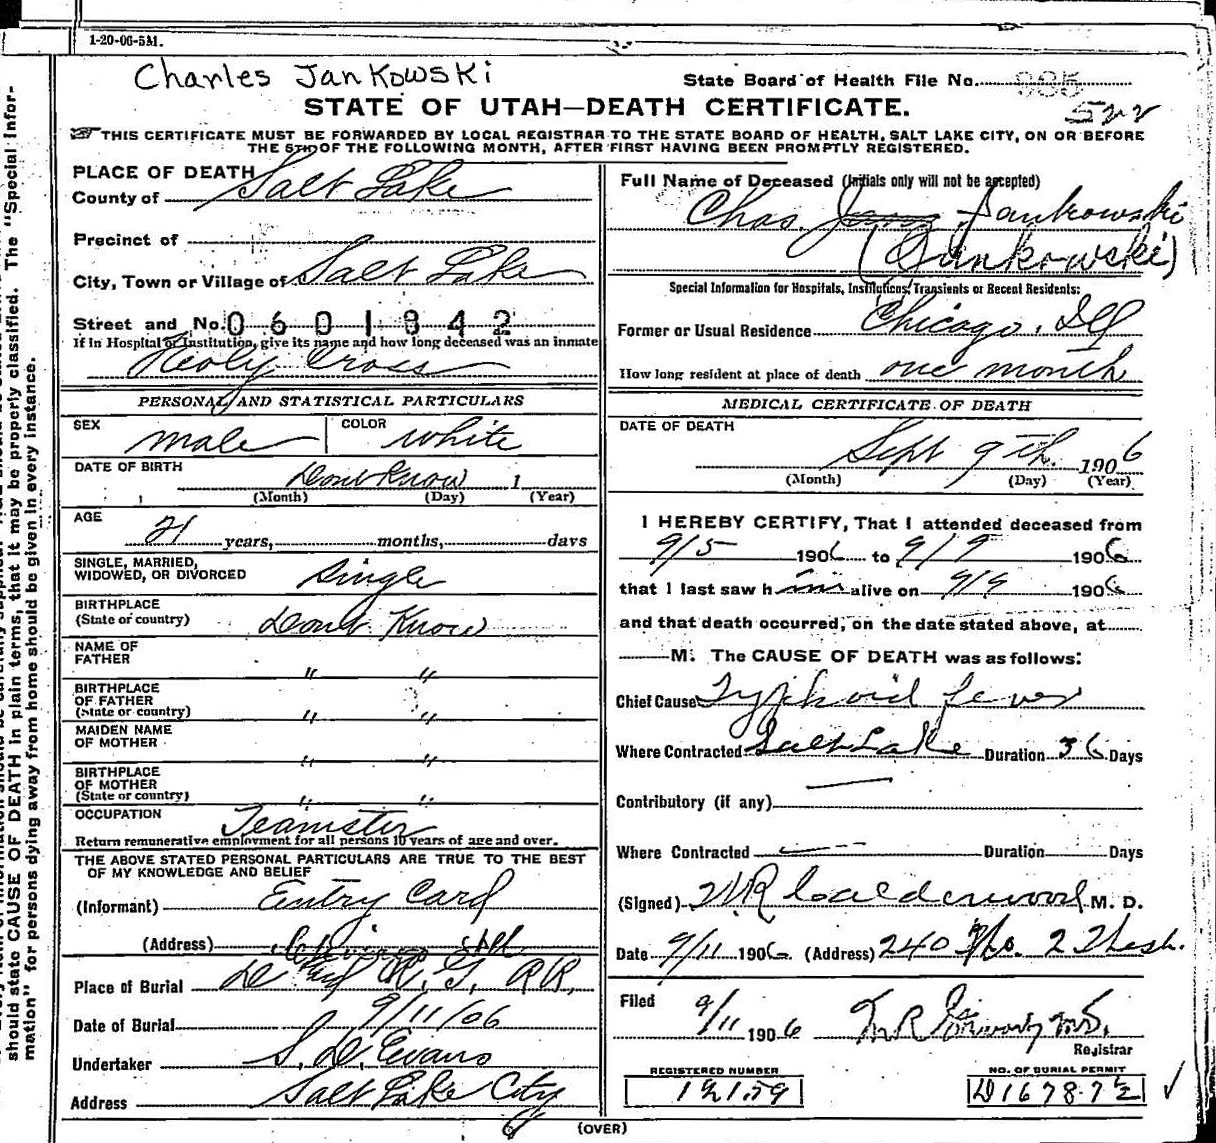 1-20-06-5M.
Charles Jankowski
State Board of Health File No.
STATE OF UTAH—DEATH CERTIFICATE.
522
THIS CERTIFICATE MUST BE FORWARDED BY LOCAL REGISTRAR TO THE STATE BOARD OF HEALTH, SALT LAKE CITY, ON OR BEFORE
THE 5TH OF THE FOLLOWING MONTH, AFTER FIRST HAVING BEEN PROMPTLY REGISTERED.
PLACE OF DEATH
County of Salt Lake
Precinct of
City, Town or Village of Salt Lake
Street and No. 0601842
If in Hospital or Institution, give its name and how long deceased was an inmate
Holy Cross
PERSONAL AND STATISTICAL PARTICULARS
SEX male COLOR white
DATE OF BIRTH Dont Know 1
(Month) (Day) (Year)
AGE
21 years, months, days
SINGLE, MARRIED,
WIDOWED, OR DIVORCED Single
BIRTHPLACE
(State or country) Dont Know
NAME OF
FATHER " "
BIRTHPLACE
OF FATHER
(State or country) " "
MAIDEN NAME
OF MOTHER " "
BIRTHPLACE
OF MOTHER
(State or country) " "
OCCUPATION Teamster
Return remunerative employment for all persons 10 years of age and over.
THE ABOVE STATED PERSONAL PARTICULARS ARE TRUE TO THE BEST
OF MY KNOWLEDGE AND BELIEF
(Informant) Entry Card
(Address)
Place of Burial R.G. RR.
Date of Burial 9/11/06
Undertaker S. D. Evans
Address Salt Lake City
(OVER)
Full Name of Deceased (Initials only will not be accepted)
Chas. Jankowski
(Sunkowski)
Special Information for Hospitals, Institutions, Transients or Recent Residents:
Former or Usual Residence Chicago, Ill
How long resident at place of death one month
MEDICAL CERTIFICATE OF DEATH
DATE OF DEATH
Sept 9th. 1906
(Month) (Day) (Year)
I HEREBY CERTIFY, That I attended deceased from
9/5 1906 to 9/9 1906
that I last saw him alive on 9/9 1906
and that death occurred, on the date stated above, at
M. The CAUSE OF DEATH was as follows:
Chief Cause Typhoid fever
Where Contracted Salt Lake Duration 36 Days
Contributory (if any)
Where Contracted Duration Days
(Signed) W.R Calderwood M. D.
Date 9/11 1906. (Address) 240
Filed
9/11 1906
Registrar
REGISTERED NUMBER
12159
NO. OF BURIAL PERMIT
D16787½
should state CAUSE OF DEATH in plain terms, that it may be properly classified. The "Special Infor-
mation" for persons dying away from home should be given in every instance.